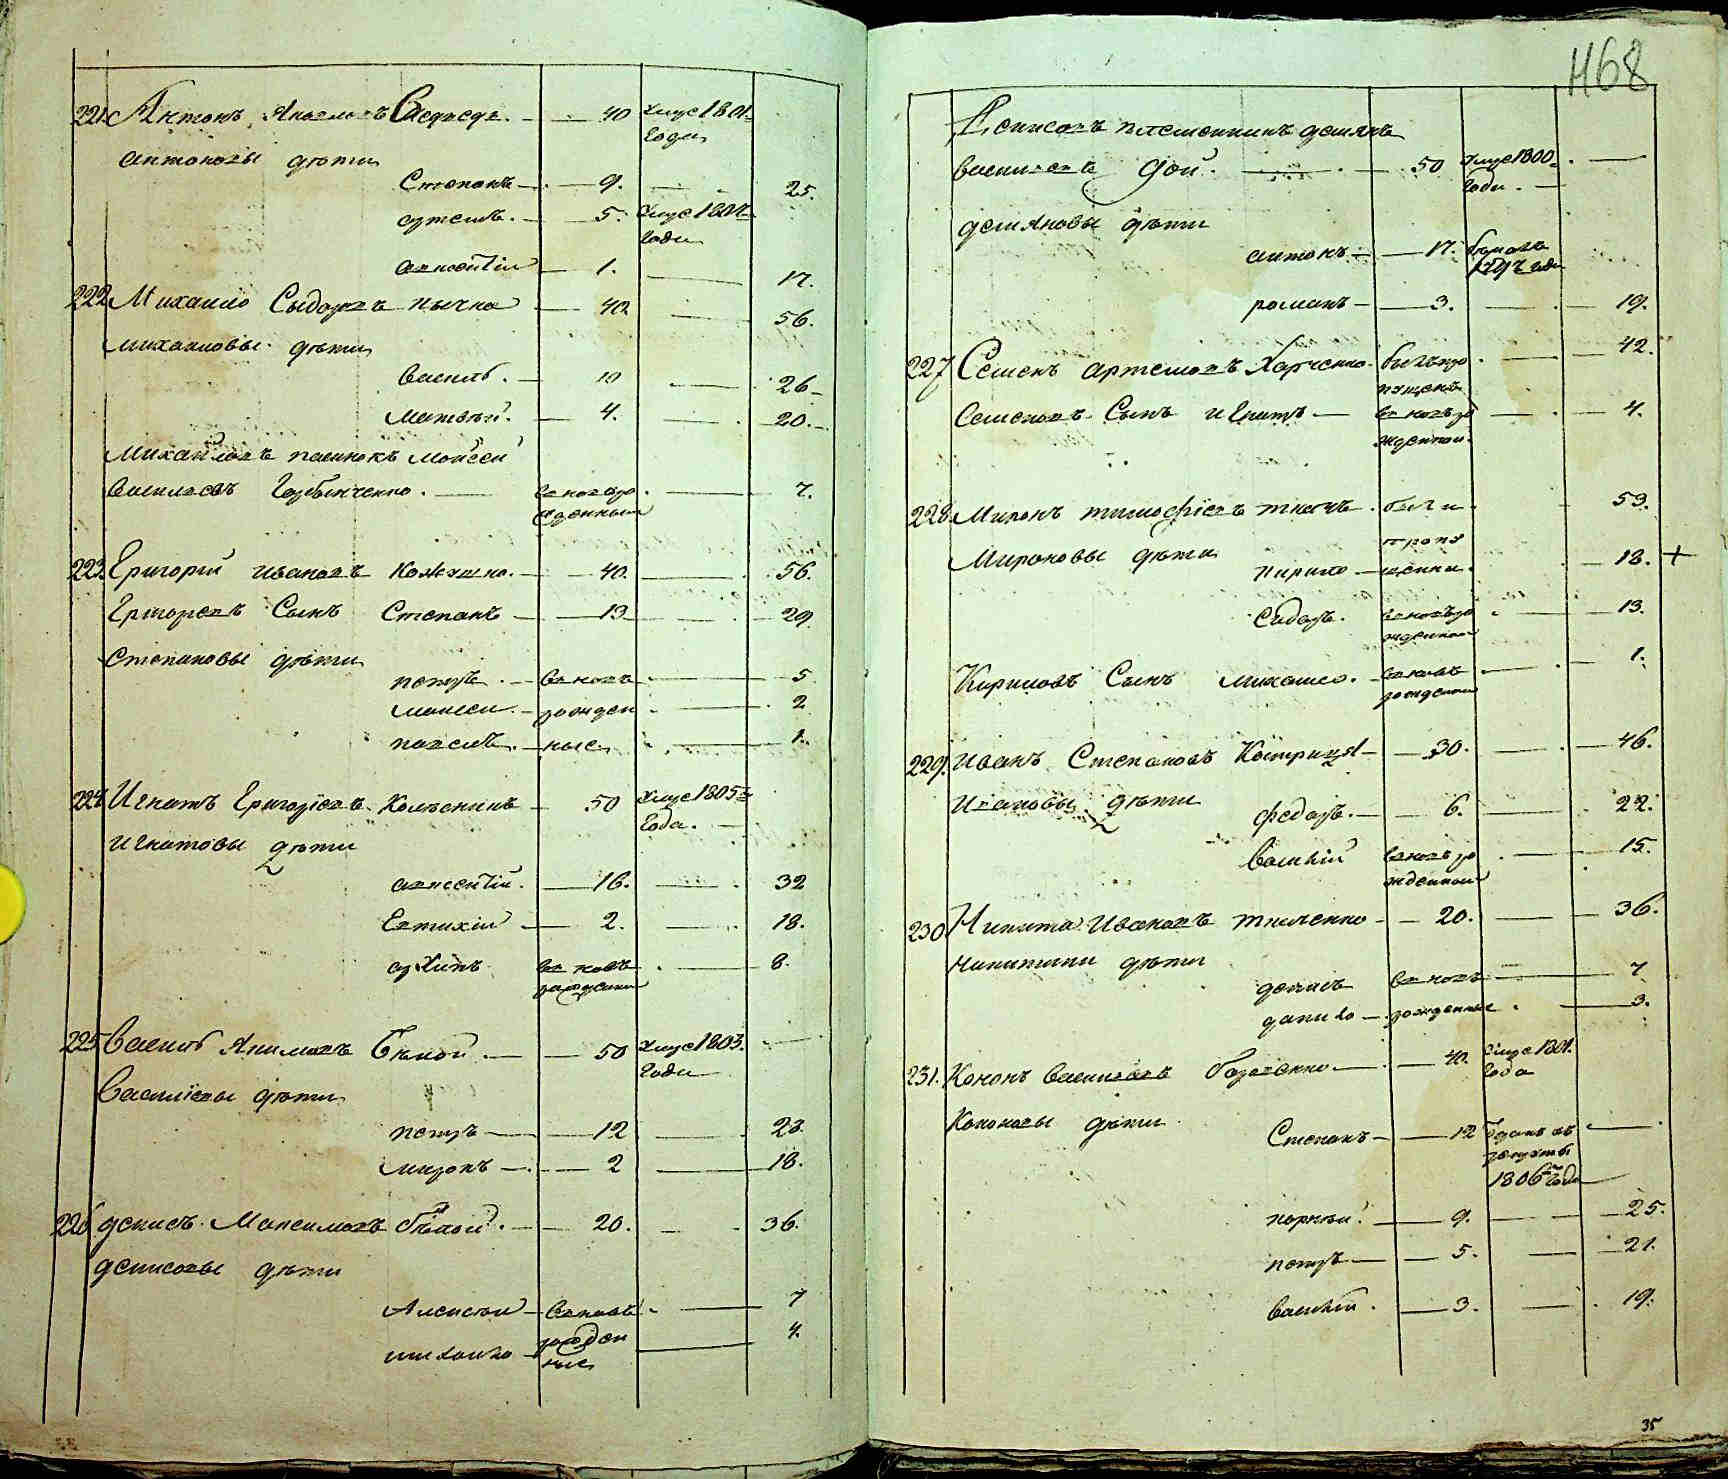 468
221 Антонъ Павловъ Сердюкъ 40 умре 1801
Года
антоновы дѣти
Степанъ 9. 25.
артемъ. 5. умре 1802
Года
авксентiй 1. 17.
222 Михайло Сыдоровъ 40 56.
михаиловы дѣти
Василь. 10 26
Матвѣй. 4. 20.
Михайловъ пасинокъ Мойсей
Василевъ Горбенченко. вновь ро 7.
жденный
223 Григорiй Ивановъ Кожушко. 40. 56.
Григорев Сынъ Степанъ 13 29
Степановы дѣти
петръ вновь 5
мойсей рожден 2
павелъ ные 1.
224 Игнатъ Григорiевъ Колѣсникъ 50 умре 1805
Года.
Игнатовы дѣти
авксентiй. 16. 32
Евтихiй 2. 18.
архипъ вновь 8.
рожденной
225 Василь Акимовъ Бѣлой 50 умре 1803.
Года
Василiевы дѣти
петръ 12 28
миронъ 2 18.
226 денисъ Максимовъ бѣлой. 20. 36.
денисовы дѣти
Алексѣй вновь 7
михайло рожден 4.
ные
Денисовъ племенникъ демьянъ
Василевъ 50 умре 1800
Года.
демяновы дѣти
антонъ 17. бѣжалъ
Года
романъ 3. 19.
227 Семенъ артемовъ Харченко былъ про 42.
пущенъ
Семеновъ Сынъ Игнатъ вновь ро 4.
жденной.
228 Миронъ тимофѣевъ ткачь были 53.
Мироновы дѣти пропу
кирило щенни. 18. +
Сидоръ. вновь ро 13.
жденной
Кириловъ Сынъ михайло. вновь 1.
рожденной
229. Иванъ Степановъ Кострица 30. 46.
Ивановы дѣти
федоръ. 6. 22.
Василiй вновь ро 15.
жденной
230 Никита Ивановъ ткаченко 20. 36.
никитины дѣти
денисъ вновь 7
данило рожденные 3.
231. Кононъ Василевъ 40. умре 1801.
Года
Кононовы дѣти
Степанъ 12 отданъ въ
рекруты
1806 Года
корнѣй. 9. 25.
петръ 5. 21.
Василiй. 3. 19.
35